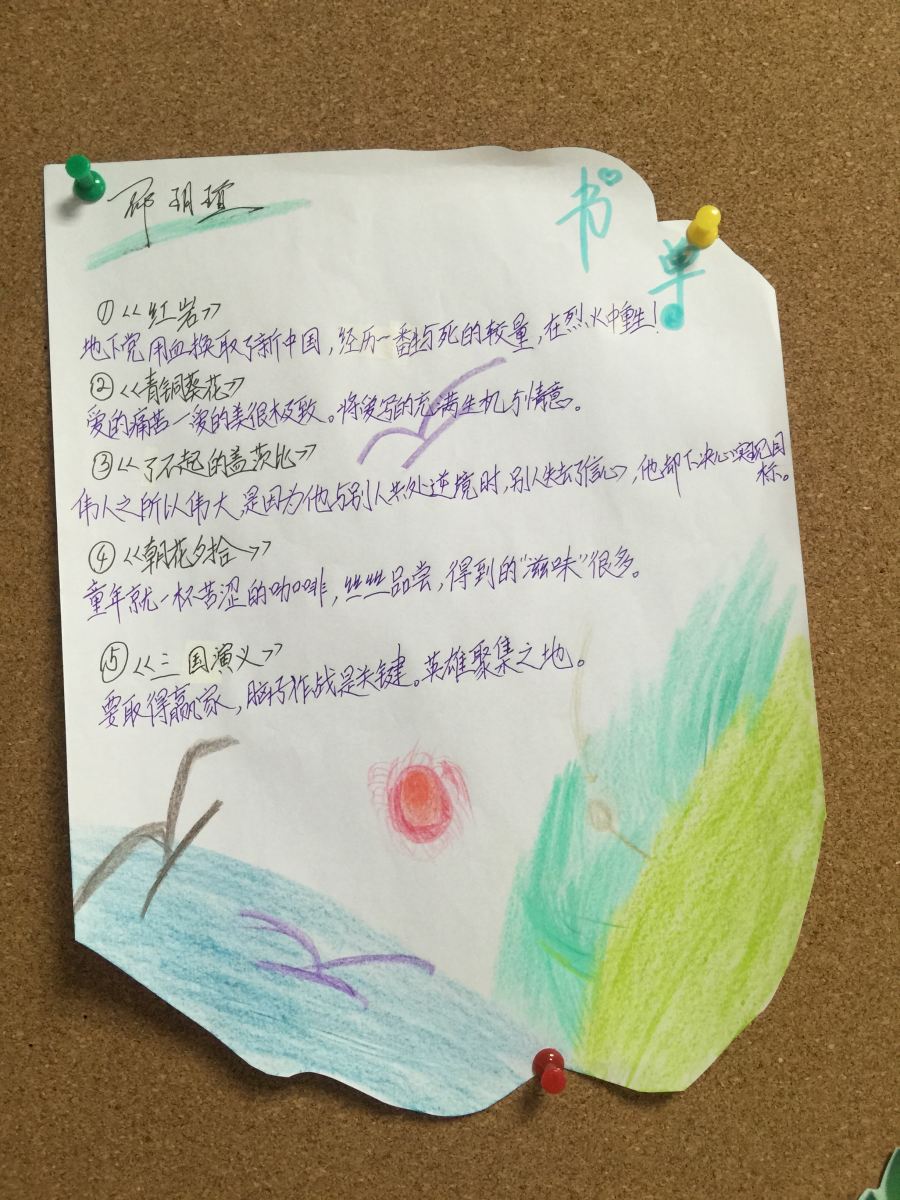 邵玥瑄
书单
①《红岩》
地下党用血换取了新中国，经历一番生与死的较量，在烈火中重生！
②《青铜葵花》
爱的痛苦一爱的美很极致。将爱写的充满生机与情意。
③《了不起的盖茨比》
伟人之所以伟大，是因为他与别人共处逆境时，别人失去了信心，他却下决心实现目标。
④《朝花夕拾》
童年就一杯苦涩的咖啡，丝丝品尝，得到的"滋味"很多。
⑤《三国演义》
要取得赢家，脑子作战是关键。英雄聚集之地。